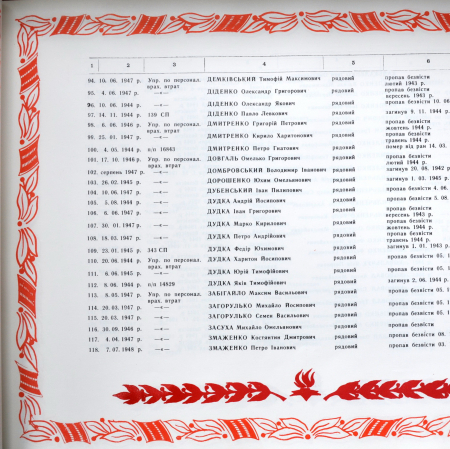 1 2 3 4 5 6
94. 10. 06. 1947 р. Упр. по персонал. ДЕМКІВСЬКИЙ Тимофій Максимович рядовий пропав безвісти
врах. втрат лютий 1943 р.
95. 4. 06. 1947 р. —«— ДІДЕНКО Олександр Григорович рядовий пропав безвісти
вересень 1943 р.
96. 10. 06. 1944 р. —«— ДІДЕНКО Олександр Якович рядовий пропав безвісти 10. 06
97. 14. 11. 1944 р. 110 СП ДІДЕНКО Павло Левкович рядовий загинув 9. 11. 1944 р.
98. 6. 06. 1946 р. Упр. по персонал. ДМИТРЕНКО Григорій Петрович рядовий пропав безвісти
врах. втрат жовтень 1944 р.
99. 25. 01. 1947 р. —«— ДМИТРЕНКО Кирило Харитонович рядовий пропав безвісти
травень 1944 р.
100. 4. 05. 1944 р. п/п 16843 ДМИТРЕНКО Петро Гнатович рядовий помер від ран 14. 03.
101. 17. 10. 1946 р. Упр. по персонал. ДОВГАЛЬ Омелько Григорович рядовий пропав безвісти
врах. втрат лютий 1944 р.
102. серпень 1947 р. —«— ДОМБРОВСЬКИЙ Володимир Іванович рядовий загинув 20. 08. 1942 р.
103. 26. 02. 1945 р. —«— ДОРОШЕНКО Юхим Омелянович рядовий загинув 1. 03. 1945 р.
104. 10. 06. 1947 р. —«— ДУБЕНСЬКИЙ Іван Пилипович рядовий пропав безвісти 4. 06.
105. 5. 08. 1944 р. —«— ДУДКА Андрій Йосипович рядовий пропав безвісти 5. 08.
106. 6. 06. 1947 р. —«— ДУДКА Іван Григорович рядовий пропав безвісти
вересень 1943 р.
107. 30. 01 1947 р. —«— ДУДКА Марко Кирилович рядовий пропав безвісти
жовтень 1944 р.
108. 18. 03. 1947 р. —«— ДУДКА Петро Андрійович рядовий пропав безвісти
травень 1944 р.
109. 23. 01. 1945 р. 343 СП ДУДКА Федір Юхимович рядовий загинув 1. 01. 1945 р.
110. 20. 06. 1944 р. Упр. по персонал. ДУДКА Харитон Йосипович рядовий пропав безвісти 05. 1
врах. втрат
111. 6. 06. 1945 р. —«— ДУДКА Юрій Тимофійович рядовий пропав безвісти
112. 8. 06. 1944 р. п/п 14829 ДУДКА Яків Тимофійович рядовий загинув 2. 06. 1944 р.
113. 8. 05. 1947 р. Упр. по персонал. ЗАБІГАЙЛО Максим Васильович рядовий пропав безвісти 05. 1
врах. втрат
114. 20. 03. 1947 р. —«— ЗАГОРУЛЬКО Михайло Йосипович рядовий пропав безвісти 05.
115. 20. 03. 1947 р. —«— ЗАГОРУЛЬКО Семен Васильович рядовий пропав безвісти 05. 1
116. 30. 09. 1946 р. —«— ЗАСУХА Михайло Омельянович рядовий пропав безвісти
117. 4. 04. 1947 р. —«— ЗМАЖЕНКО Костянтин Дмитрович рядовий пропав безвісти 08.
118. 7. 07. 1948 р. —«— ЗМАЖЕНКО Петро Іванович рядовий пропав безвісти 03.